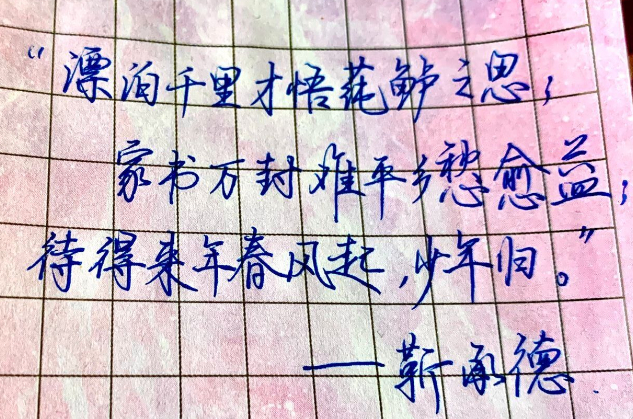 “漂泊千里才悟莼鲈之思；
家书万封难平乡愁愈益；
待得来年春风起，少年归。”
——靳承德